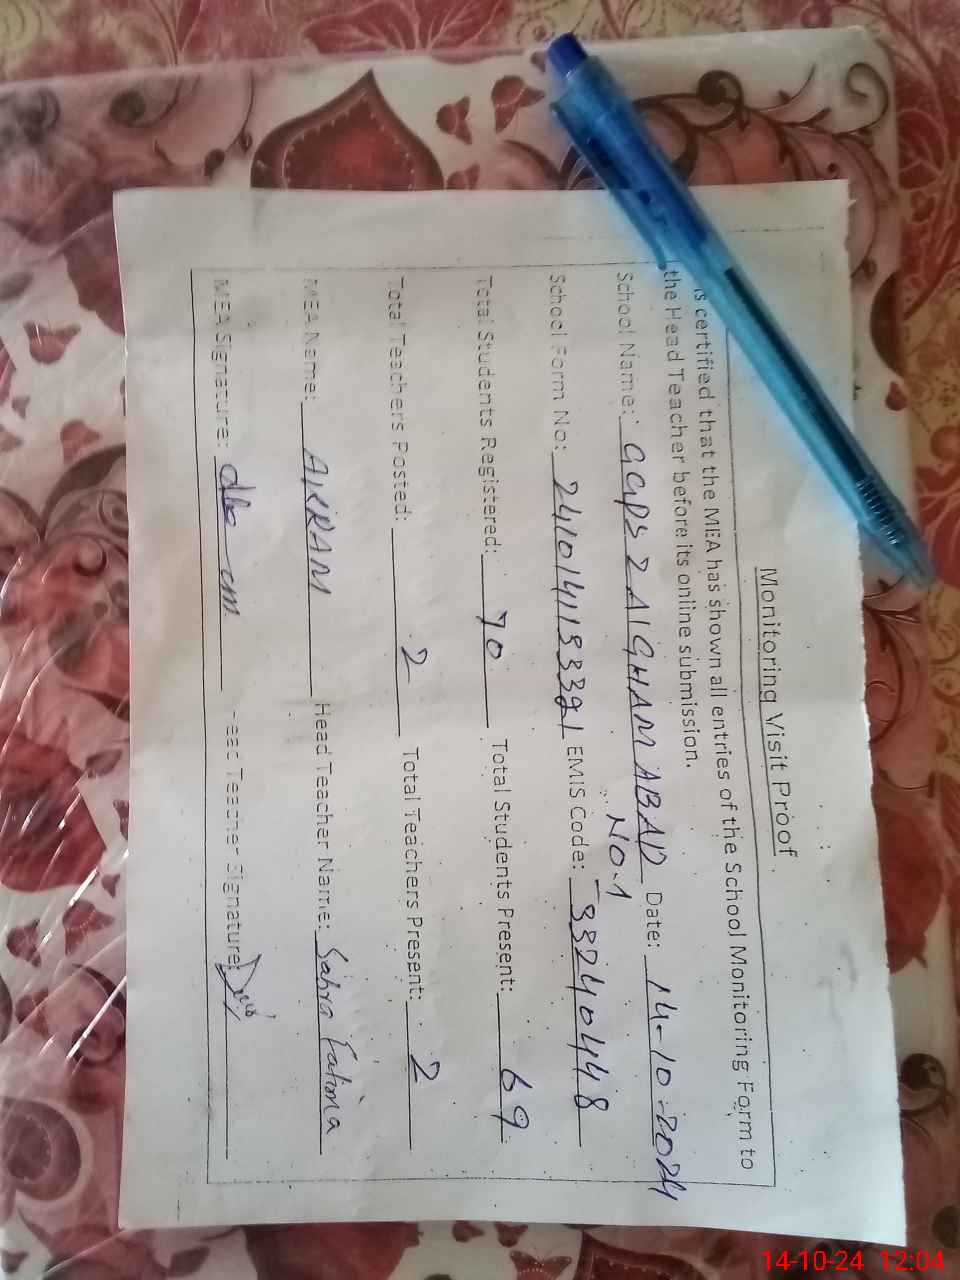 Monitoring Visit Proof
is certified that the MEA has shown all entries of the School Monitoring Form to
the Head Teacher before its online submission.
School Name: GGPS ZAIGHAM ABAD Date: 14-10-2024
NO.1
School Form No: EMIS Code: 33240448
Total Students Registered: 70 Total Students Present: 69
Total Teachers Posted: 2 Total Teachers Present: 2
MEA Name: AKRAM Head Teacher Name: Sabra Fatima
MEA Signature: Head Teacher Signature:
14-10-24 12:04